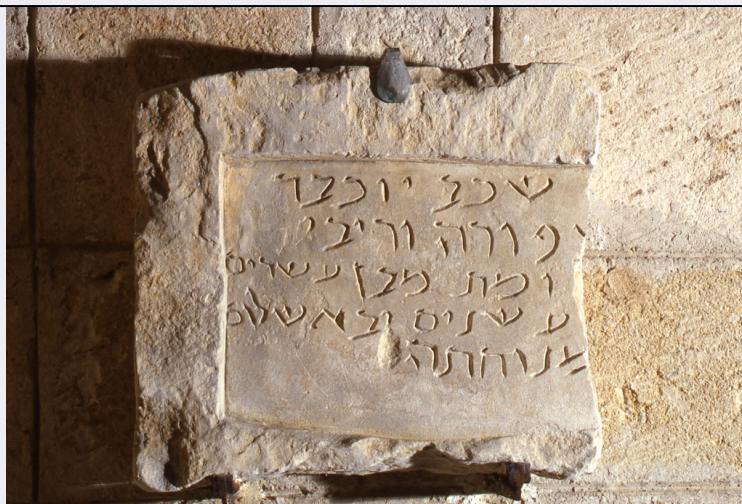 שכב יוכבד
פורה וריבי
ומת מבן עשרים
ע שנים ובא שלום
מנוחתה